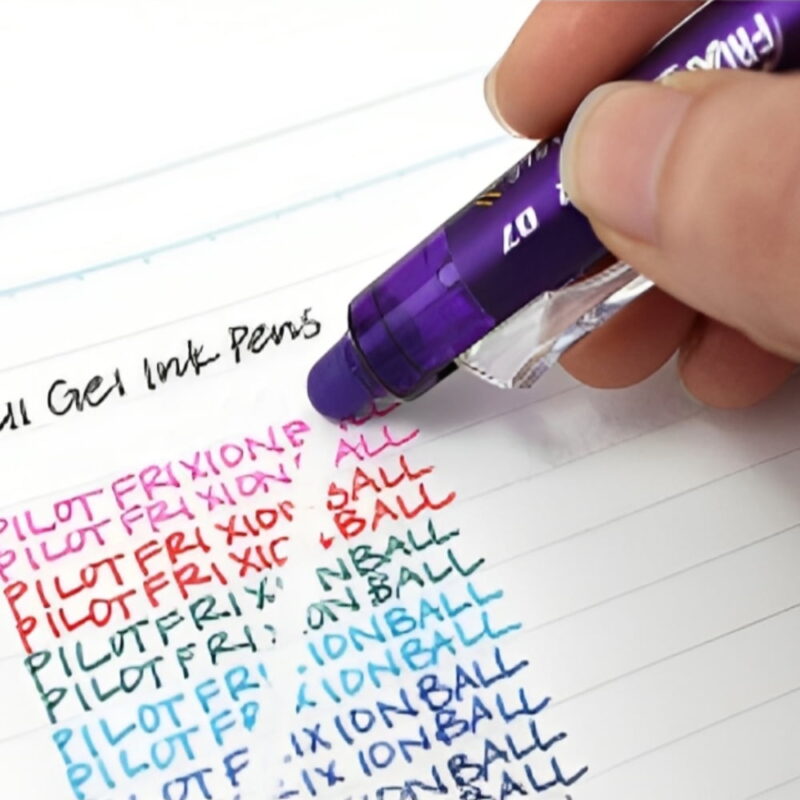 FRIXI
07
ll Gel Ink Pens
PILOT FRIXIONB ALL
PILOT FRIXION ALL
PILOT FRIXION BALL
PILOT FRIXIO BALL
PILOT FRIX NBALL
PILOT FRI ONBALL
PILOT FRI IONBALL
PILOT FR XIONBALL
PILOT F IXIONBALL
IXIONBALL
ONBALL
BALL